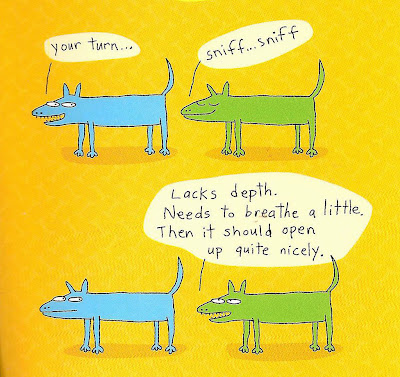 your turn...
sniff...sniff
Lacks depth.
Needs to breathe a little.
Then it should open
up quite nicely.